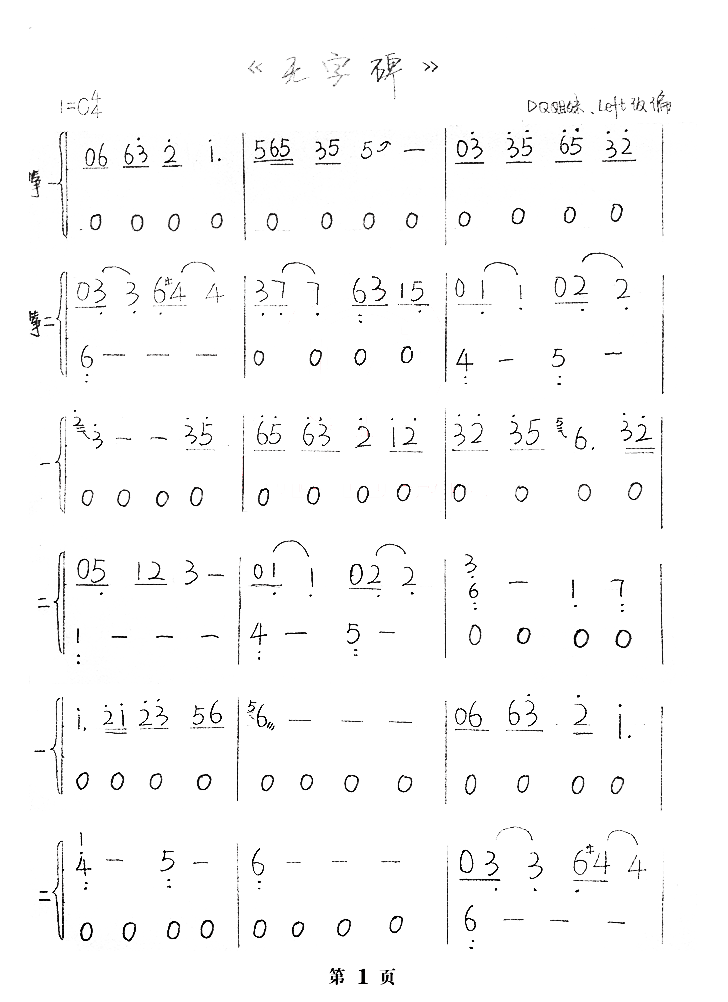 《无字碑》
1=C 4/4
DQ姐妹、Left改编
筝一 06 63̇ 2̇ 1̇. | 565 35 5 — | 03̇ 3̇5̇ 6̇5̇ 3̇2̇
0 0 0 0 | 0 0 0 0 | 0 0 0 0
筝二 03̣ 3̣ 6̣#4̣ 4 | 3̣7̣ 7̣ 63 15̣ | 01̣ 1̣ 02̣ 2̣
6̣ — — — | 0 0 0 0 | 4̣ — 5̣ —
一 2̇3̇ — — 3̇5̇ | 6̇5̇ 6̇3̇ 2̇ 1̇2̇ | 3̇2̇ 3̇5 5̇6. 3̇2̇
0 0 0 0 | 0 0 0 0 | 0 0 0 0
二 05̣ 12 3 — | 01̣ 1̣ 02̣ 2̣ | 3 6̣ — 1̣ 7̣
1̣ — — — | 4̣ — 5̣ — | 0 0 0 0
一 1̇. 2̇1̇ 2̇3̇ 56 | 56 — — — | 06 63̇ 2̇ 1̇.
0 0 0 0 | 0 0 0 0 | 0 0 0 0
二 1 4̣ — 5̣ — | 6̣ — — — | 03̣ 3̣ 6̣#4̣ 4
0 0 0 0 | 0 0 0 0 | 6̣ — — —
第 1 页